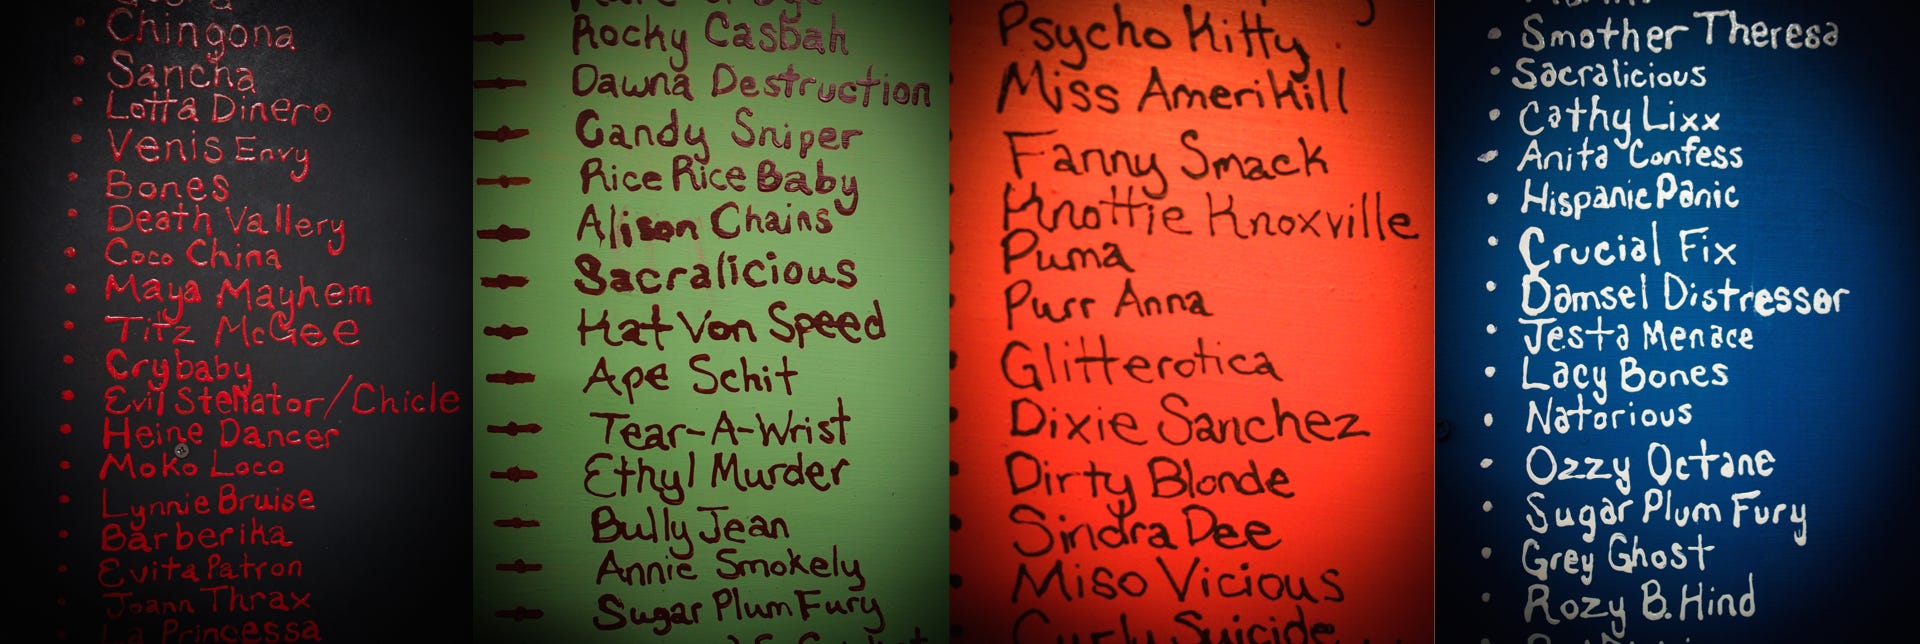 Chingona
Sancha
Lotta Dinero
Venis Envy
Bones
Death Vallery
Coco China
Maya Mayhem
Titz McGee
Crybaby
Evil Stemator/Chicle
Heine Dancer
Moko Loco
Lynnie Bruise
Barberika
Evita Patron
Joann Thrax
La Princessa
Rocky Casbah
Dawna Destruction
Candy Sniper
Rice Rice Baby
Alison Chains
Sacralicious
Kat Von Speed
Ape Schit
Tear-A-Wrist
Ethyl Murder
Bully Jean
Annie Smokely
Sugar Plum Fury
Psycho Kitty
Miss Amerikill
Fanny Smack
Knottie Knoxville
Puma
Purr Anna
Glitterotica
Dixie Sanchez
Dirty Blonde
Sindra Dee
Miso Vicious
Curly Suicide
Smother Theresa
Sacralicious
Cathy Lixx
Anita Confess
Hispanic Panic
Crucial Fix
Damsel Distressor
Jesta Menace
Lacy Bones
Natorious
Ozzy Octane
Sugar Plum Fury
Grey Ghost
Rozy B. Hind